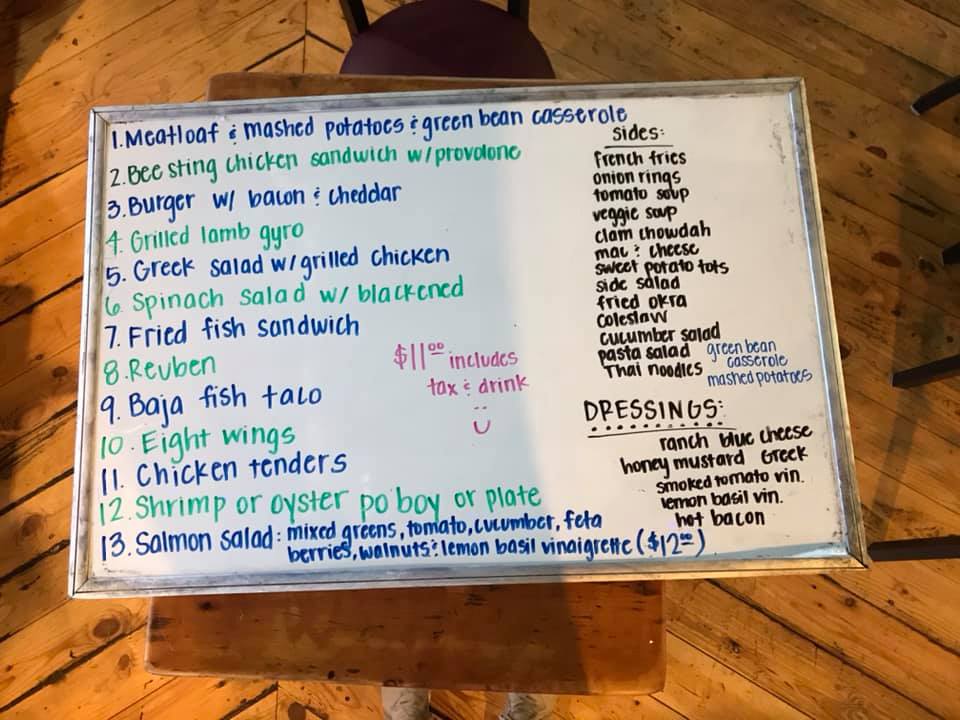 1. Meatloaf & mashed potatoes & green bean casserole
2. Bee sting chicken sandwich w/provolone
3. Burger w/ bacon & cheddar
4. Grilled lamb gyro
5. Greek salad w/grilled chicken
6. Spinach salad w/ blackened
7. Fried fish sandwich
8. Reuben
9. Baja fish taco
10. Eight wings
11. Chicken tenders
12. Shrimp or oyster po'boy or plate
13. Salmon salad: mixed greens, tomato, cucumber, feta
berries, walnuts & lemon basil vinaigrette ($12.00)
$11.00 includes
tax & drink
sides:
french fries
onion rings
tomato soup
veggie soup
clam chowdah
mac & cheese
sweet potato tots
side salad
fried okra
coleslaw
cucumber salad
pasta salad
Thai noodles
green bean
casserole
mashed potatoes
DRESSINGS:
ranch blue cheese
honey mustard Greek
smoked tomato vin.
lemon basil vin.
hot bacon